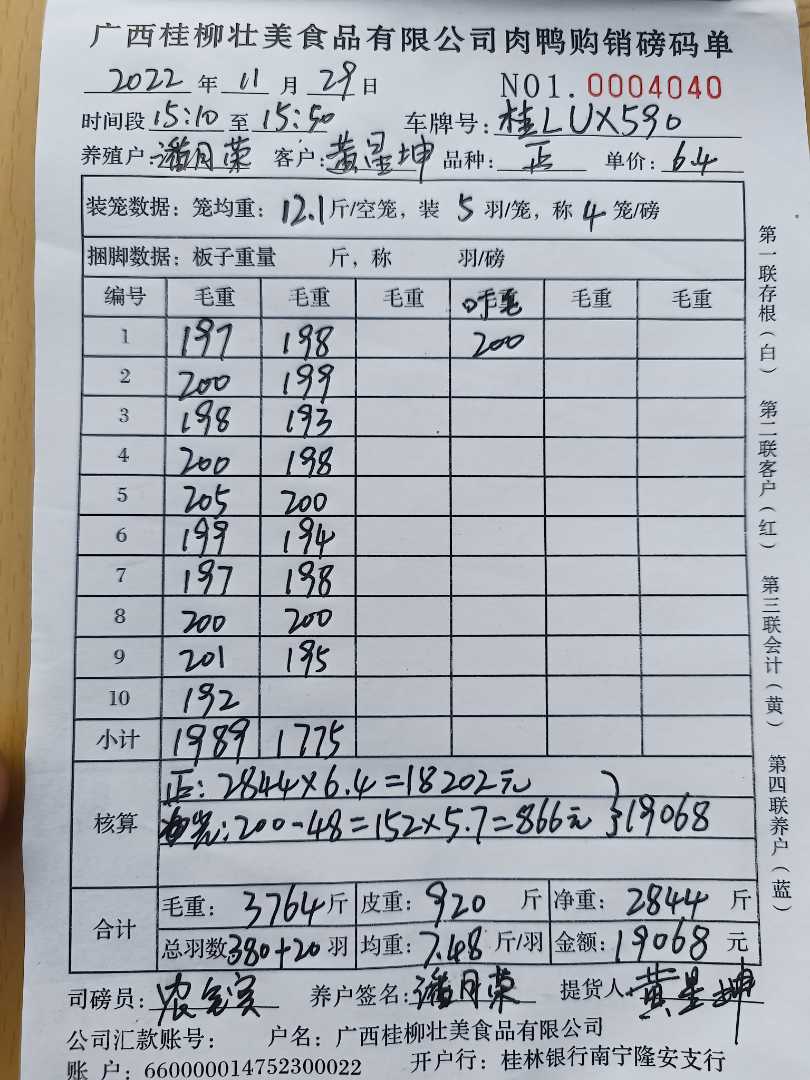 广西桂柳壮美食品有限公司肉鸭购销磅码单
2022 年 11 月 29 日 NO1. 0004040
时间段 15:10 至 15:50 车牌号: 桂LUX590
养殖户: 潘月荣 客户: 黄星坤 品种: 正 单价: 6.4
装笼数据: 笼均重: 12.1 斤/空笼, 装 5 羽/笼, 称 4 笼/磅
捆脚数据: 板子重量 斤, 称 羽/磅
编号 毛重 毛重 毛重 毛重 毛重
1 197 198 200
2 200 199
3 198 193
4 200 198
5 205 200
6 199 194
7 197 198
8 200 200
9 201 195
10 192
小计 1989 1775
核算 正: 2844×6.4=18202元
: 200-48=152×5.7=866元 } 19068
合计 毛重: 3764 斤 皮重: 920 斤 净重: 2844 斤
总羽数 380+20 羽 均重: 7.48 斤/羽 金额: 19068 元
司磅员: 养户签名: 潘月荣 提货人: 黄星坤
公司汇款账号: 户名: 广西桂柳壮美食品有限公司
账 户: 660000014752300022 开户行: 桂林银行南宁隆安支行
第一联存根(白) 第二联客户(红) 第三联会计(黄) 第四联养户(蓝)